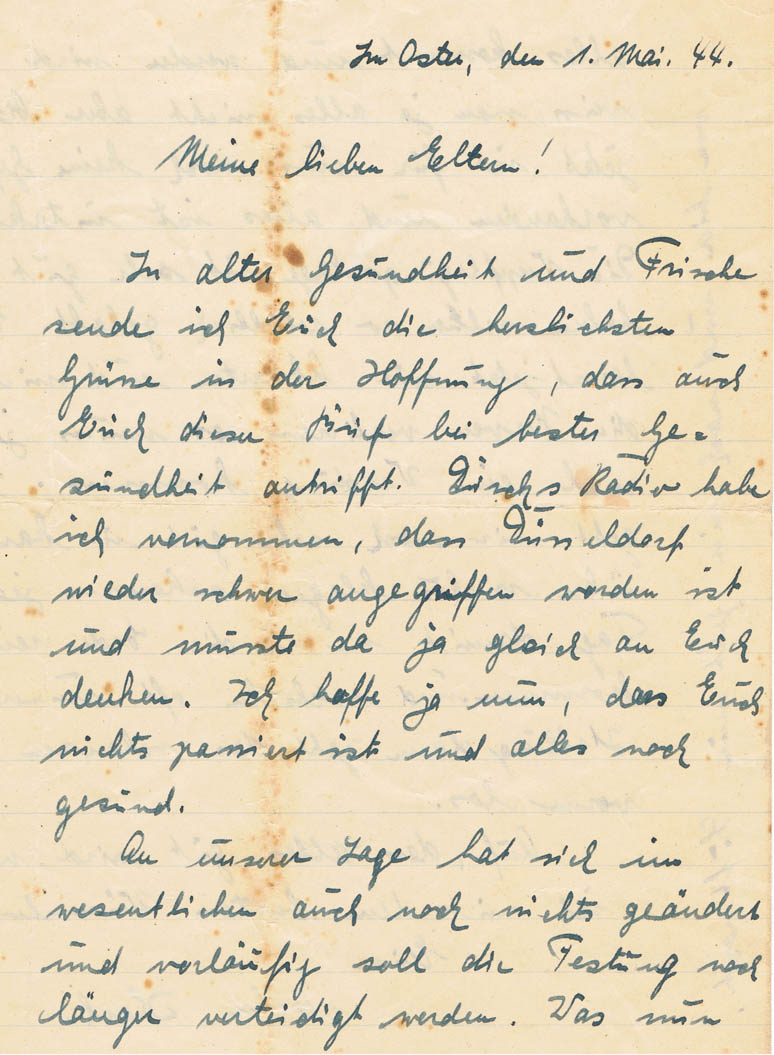 Im Osten, den 1. Mai. 44.
Meine lieben Eltern!
In alter Gesundheit und Frische
sende ich Euch die herzlichsten
Grüsse in der Hoffnung, dass auch
Euch dieser Brief bei bester Ge=
sundheit antrifft. Durchs Radio habe
ich vernommen, dass Düsseldorf
wieder schwer angegriffen worden ist
und musste da ja gleich an Euch
denken. Ich hoffe ja nun, dass Euch
nichts passiert ist und alles noch
gesund.
An unserer Lage hat sich im
wesentlichen auch noch nichts geändert
und vorläufig soll die Festung noch
länger verteidigt werden. Was nun